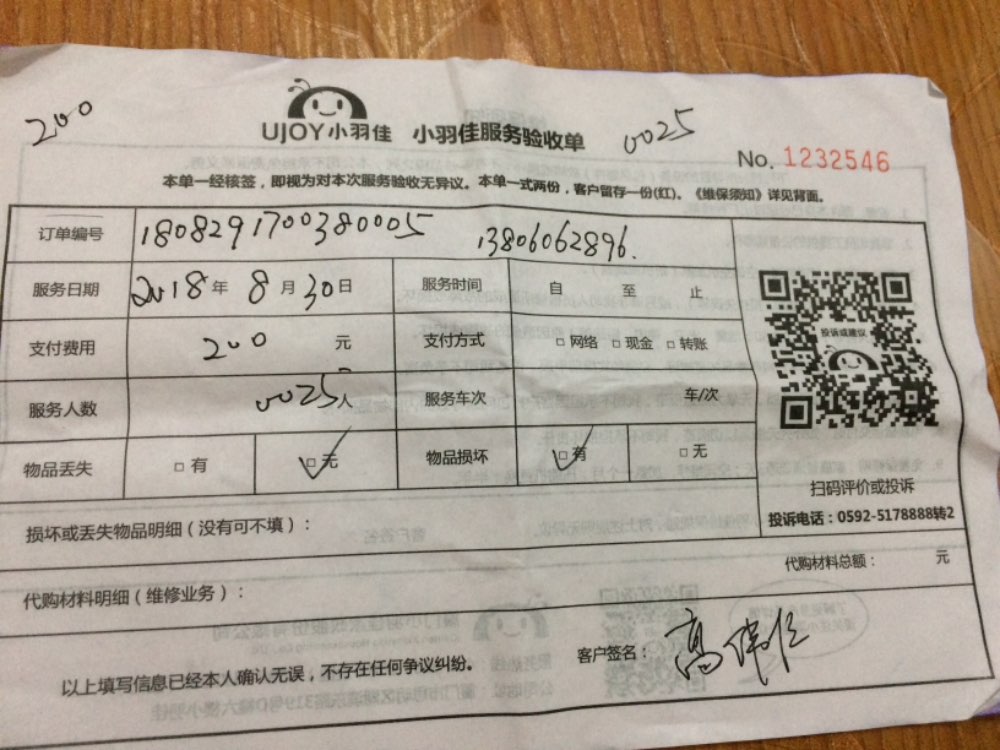 200
UJOY小羽佳 小羽佳服务验收单 0025
No. 1232546
本单一经核签，即视为对本次服务验收无异议。本单一式两份，客户留存一份(红)。《维保须知》详见背面。
订单编号 1808291700380005 13806062896.
服务日期 2018年 8月30日 服务时间 自 至 止
支付费用 200 元 支付方式 □网络 □现金 □转账
服务人数 0025人 服务车次 车/次
物品丢失 □有 ✓□无 物品损坏 ✓□有 □无
投诉或建议
扫码评价或投诉
投诉电话：0592-5178888转2
损坏或丢失物品明细（没有可不填）：
代购材料总额： 元
代购材料明细（维修业务）：
以上填写信息已经本人确认无误，不存在任何争议纠纷。
客户签名： 高